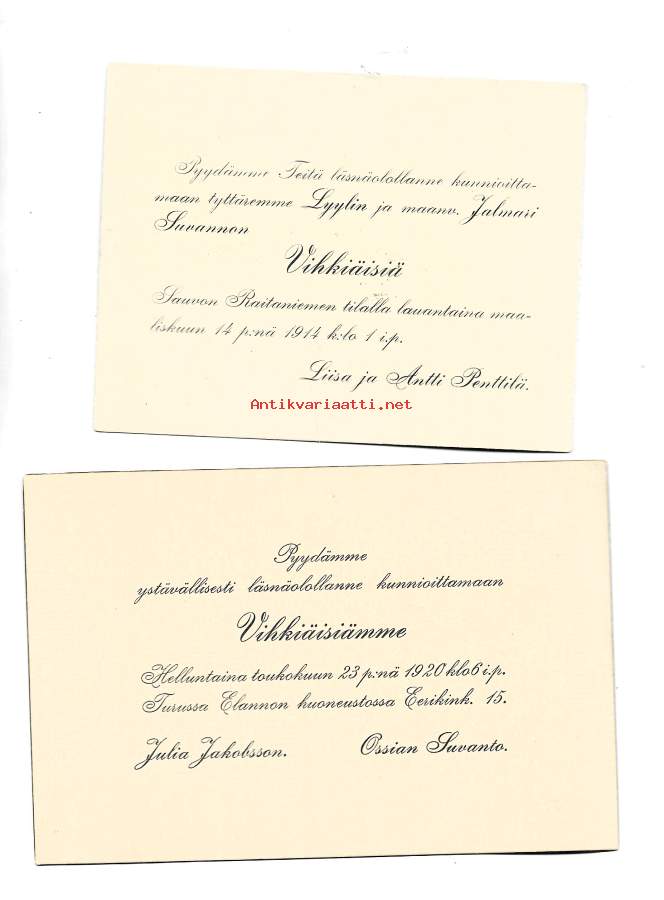 Pyydämme Teitä läsnäolollanne kunnioitta-
maan tyttäremme Lyylin ja maanv. Jalmari
Suvannon
Vihkiäisiä
Sauvon Raitaniemen tilalla lauantaina maa-
liskuun 14 p:nä 1914 k:lo 1 i.p.
Liisa ja Antti Penttilä.
Antikvariaatti.net
Pyydämme
ystävällisesti läsnäolollanne kunnioittamaan
Vihkiäisiämme
Helluntaina toukokuun 23 p:nä 1920 klo 6 i.p.
Turussa Elannon huoneustossa Eerikink. 15.
Julia Jakobsson. Ossian Suvanto.